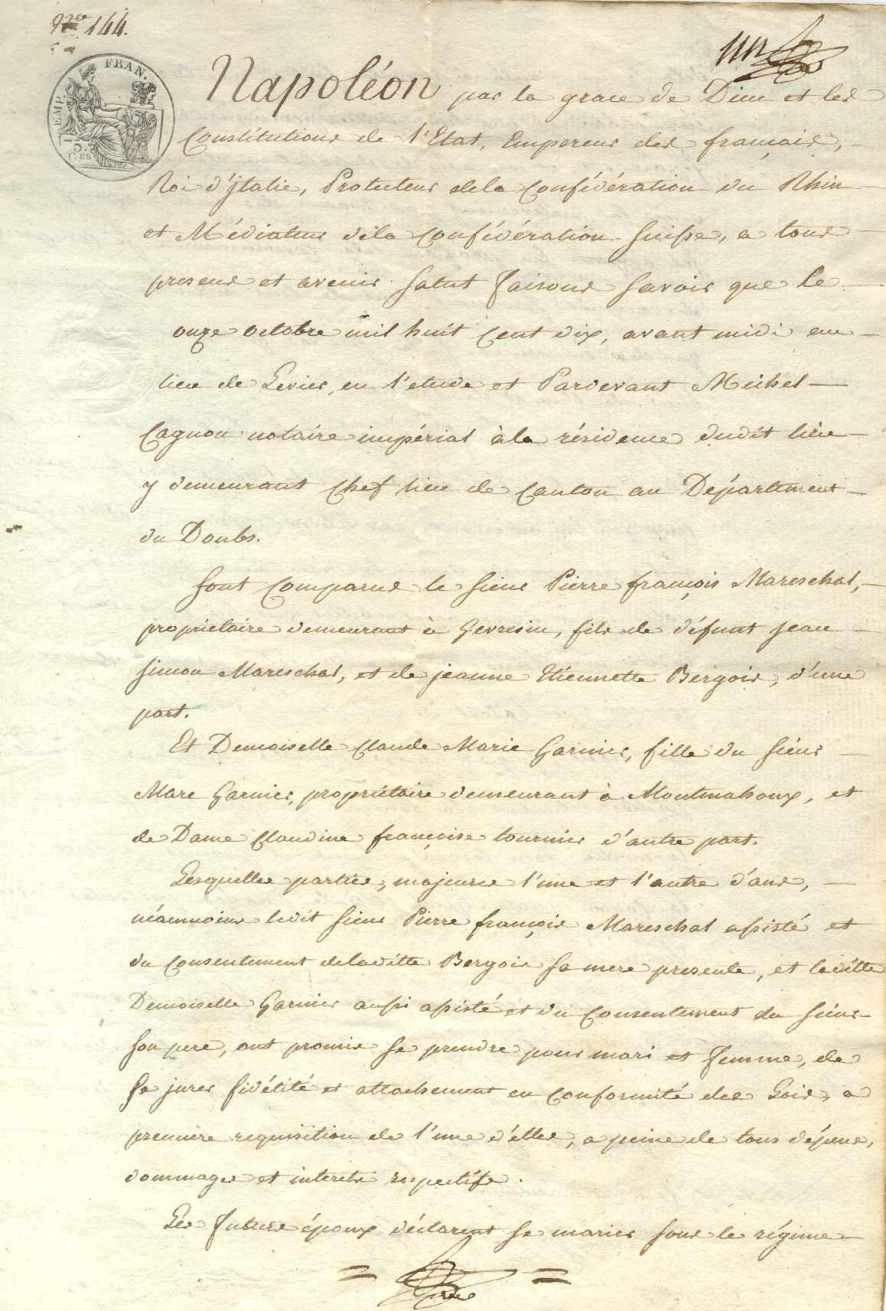 N.º 144.
EMP. FRAN.
Napoléon par la grace de Dieu et les
Constitutions de l'Etat, Empereur des français,
Roi d'Jtalie, Protecteur dela Confédération du Rhin
et Médiateur dela Confédération Suisse, a tous
presens et avenir Salut faisons Savoir que le
onze octobre mil huit Cent dix, avant midi au
lieu de Levier, en l'etude et Pardevant Michel
Cagnon notaire impérial àla résidence dudit lieu
y demeurant Chef lieu de Canton au Département
du Doubs.
Sont Comparus le Sieur Pierre françois Mareschal,
propriétaire demeurant à Gevresin, fils de défunt jean
Simon Mareschal, et de jeanne Etiennette Bergois, d'une
part.
Et Demoiselle Claude Marie Garnier, fille du Sieur
Marc Garnier, propriétaire demeurant à Montmahoux, et
de Dame Claudine françoise tournier d'autre part.
Lesquelles parties, majeures l'une et l'autre d'ans,
néanmoins ledit Sieur Pierre françois Mareschal assisté et
du Consentement deladitte Bergois sa mere presente, et laditte
Demoiselle Garnier aussi assisté et du Consentement du Sieur
Son pere, ont promis se prendre pour mari et femme, de
Se jurer fidélité et attachement en Conformité des Lois, a
première requisition de l'une d'elles, a peine de tous dépens,
dommages et interets respectifs.
Les futurs époux déclarent se marier sous le régime